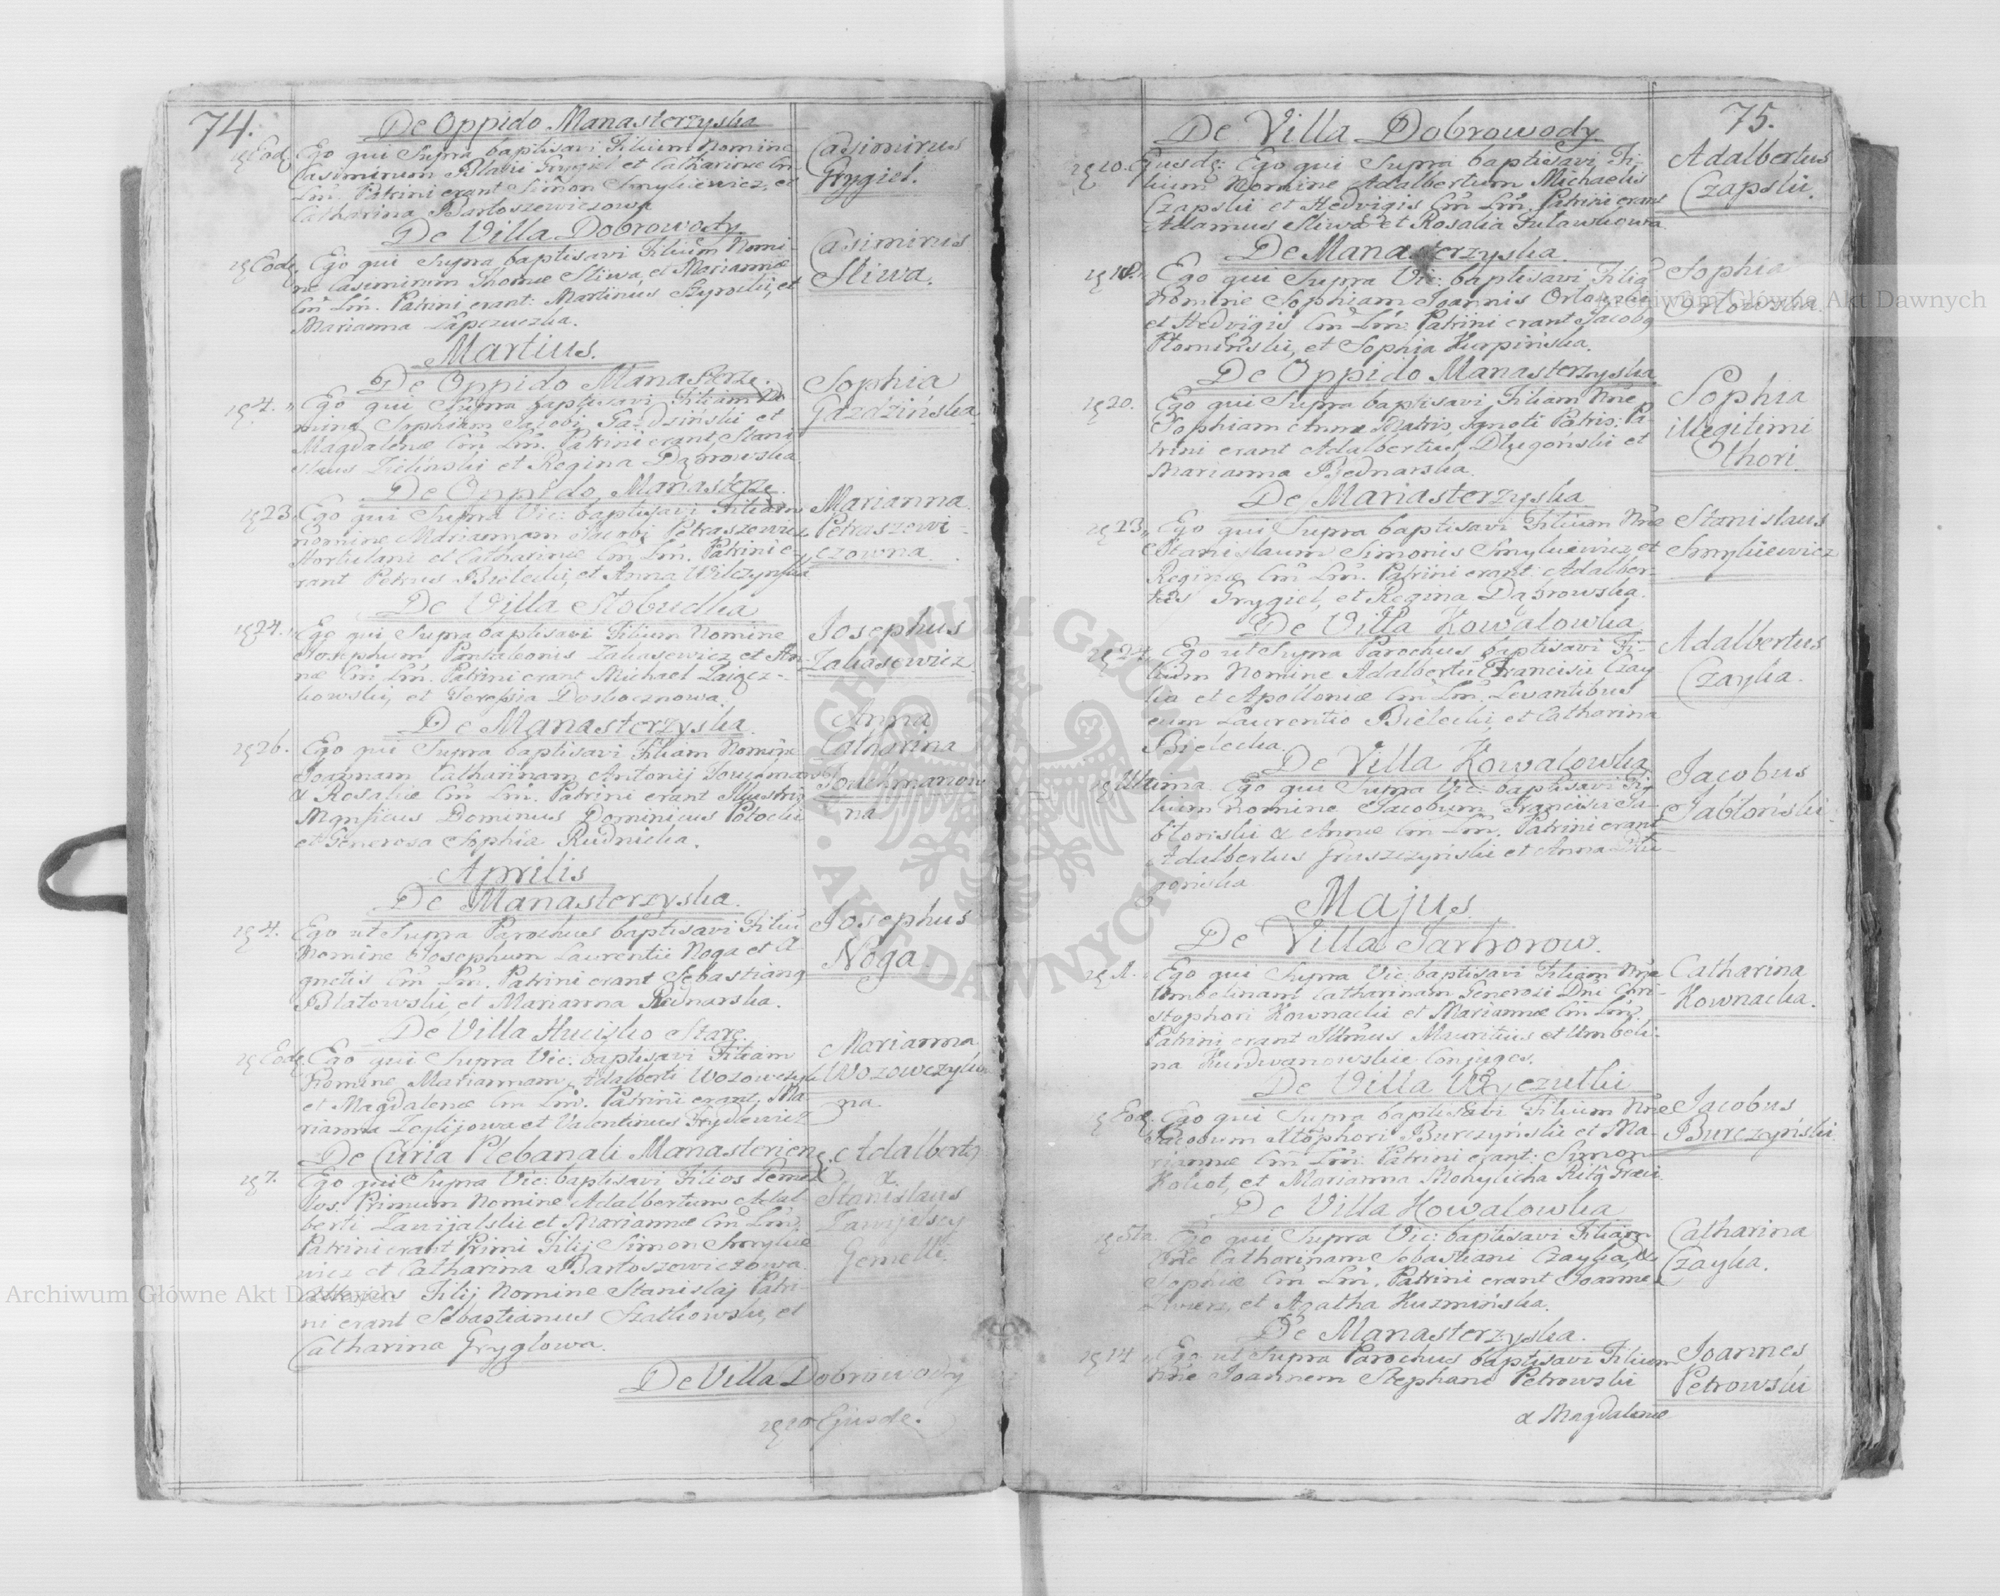 74.
De Oppido Manasterzyska
Eod. Ego qui Supra baptisavi Filium Nomine
Casimirum Blasii Grygiel et Catharinæ Cm̃
Lm̃. Patrini erant Simon Smykiewicz, et
Catharina Bartoszewiczowa
Casimirus
Grygiel.
De Villa Dobrowody.
Eode, Ego qui Supra baptisavi Filium Nomi-
ne Casimirum Thomæ Sliwa et Mariannæ
Cm̃ Lm̃. Patrini erant: Martinus Szyrocki, et
Marianna
Casimirus
Sliwa.
Martius.
De Oppido Manasterz:
4. Ego qui Supra baptisavi Filiam No
mine Sophiam Jacobi Gazdziński et
Magdalenæ Cm̃ Lm̃. Patrini erant Stani
slaus Zieliński et Regina Dąbrowska
Sophia
Gazdzińska
De Oppido Manasterze
23. Ego qui Supra Vic: baptisavi Filiam
Nomine Mariannam Jacobi Petraszewicz
Hortulani et Catharinæ Cm̃ Lm̃. Patrini e
rant Petrus Bielecki, et Anna Wilczyńska
Marianna
Petraszewi-
czowna
De Villa Slobudka
24. Ego qui Supra baptisavi Filium Nomine
Josephum Pantaleonis Zakasewicz et An-
næ Cm̃ Lm̃. Patrini erant Michael
kowski, et
Josephus
Zakasewicz
De Manasterzyska
26. Ego qui Supra baptisavi Filiam Nomine
Joannam Catharinam Antonij
& Rosaliæ Cm̃ Lm̃. Patrini erant Illustris
Mgnficus Dominus Dominicus Potocki
et Generosa Sophia Rudnicka.
Anna
Catharina
na
Aprilis
De Manasterzyska.
4. Ego ut Supra Parochus baptisavi Filiũ
Nomine Josephum Laurentii Noga et A-
gnetis Cm̃ Lm̃. Patrini erant Sebastianus
Blatowski, et Marianna Bednarska.
Josephus
Noga
De Villa Hucisko Stare
Eode Ego qui Supra Vic: baptisavi Filiam
Nomine Mariannam Adalberti Wozowczyk
et Magdalenæ Cm̃ Lm̃. Patrini erant, Ma
rianna et Valentinus
Marianna
Wozowczyko
na
De Curia Plebanali Manasterien
7. Ego qui Supra Vic: baptisavi Filios Geme
los. Primum Nomine Adalbertum Adal
berti et Mariannæ Cm̃ Lm̃.
Patrini erant Primi Filij Simon Smykie
wicz et Catharina Bartoszewiczowa.
Alterius Filij Nomine Stanislaj Patri-
ni erant Sebastianus Szatkowski, et
Catharina Gryglowa.
Adalberty
&
Stanislaus
Gemelli.
De Villa Dobrowody
10 Ejusde.
75.
De Villa Dobrowody
10. Ejusde: Ego qui Supra baptisavi Fi-
lium Nomine Adalbertum Michaelis
Czapski et Hedvigis Cm̃ Lm̃. Patrini erant
Adamus Sliwa et Rosalia
Adalbertus
Czapski.
De Manasterzyska.
18. Ego qui Supra Vic: baptisavi Filiã
Nomine Sophiam Joannis Orlowski
et Hedvigis Cm̃ Lm̃. Patrini erant Jacobus
et Sophia Kurpińska.
Sophia
Orlowska.
De Oppido Manasterzyska
20. Ego qui Supra baptisavi Filiam Nñe
Sophiam Annæ Matris, Ignoti Patris. Pa-
trini erant Adalbertus Długoński et
Marianna Bednarska
Sophia
illegitimi
Thori.
De Manasterzyska
23. Ego qui Supra baptisavi Filium Nñe
Stanislaum Simonis Smykiewicz et
Reginæ Cm̃ Lm̃. Patrini erant Adalber-
tus Grygiel, et Regina Dąbrowska.
Stanislaus
Smykiewicz
De Villa Kowalowka
24. Ego ut Supra Parochus baptisavi Fi-
lium Nomine Adalbertũ Francisci Czay
ka et Apolloniæ Cm̃ Lm̃. Levantibus
eum Laurentio Bielecki, et Catharina
Bielecka.
Adalbertus
Czayka.
De Villa Kowalowka
Ultima Ego qui Supra Vic: baptisavi Fi-
lium Nomine Jacobum Francisci Ja-
błoński & Annæ Cm̃ Lm̃. Patrini erant
Adalbertus Gruszczyński et Anna Dłu-
gońska
Jacobus
Jabłoński.
Majus.
De Villa Tarhorow.
1. Ego qui Supra Vic: baptisavi Filiam Nñe
Umbelinam Catharinam Generosi Dñi Chri-
stophori Kownacki et Mariannæ Cm̃ Lm̃.
Patrini erant Mauritius et Umbeli-
na Conjuges.
Catharina
Kownacka.
De Villa Wyczułki
Eode Ego qui Supra baptisavi Filium Nñe
Jacobum Burczyński et Ma-
riannæ Cm̃ Lm̃. Patrini erant: Simon
et Marianna Mohylicha
Jacobus
Burczyński
De Villa Kowalowka
5ta. Ego qui Supra Vic: baptisavi Filiam
Nñe Catharinam Sebastiani Czayka, &
Sophiæ Cm̃ Lm̃. Patrini erant Joannes
et Agatha Kuzmińska.
Catharina
Czayka.
De Manasterzyska.
14 Ego ut Supra Parochus baptisavi Filium
Nñe Joannem Stephani Petrowski
& Magdalenæ
Joannes
Petrowski
Archiwum Główne Akt Dawnych
Archiwum Główne Akt Dawnych
ARCHIWUM GŁÓWNE AKT DAWNYCH